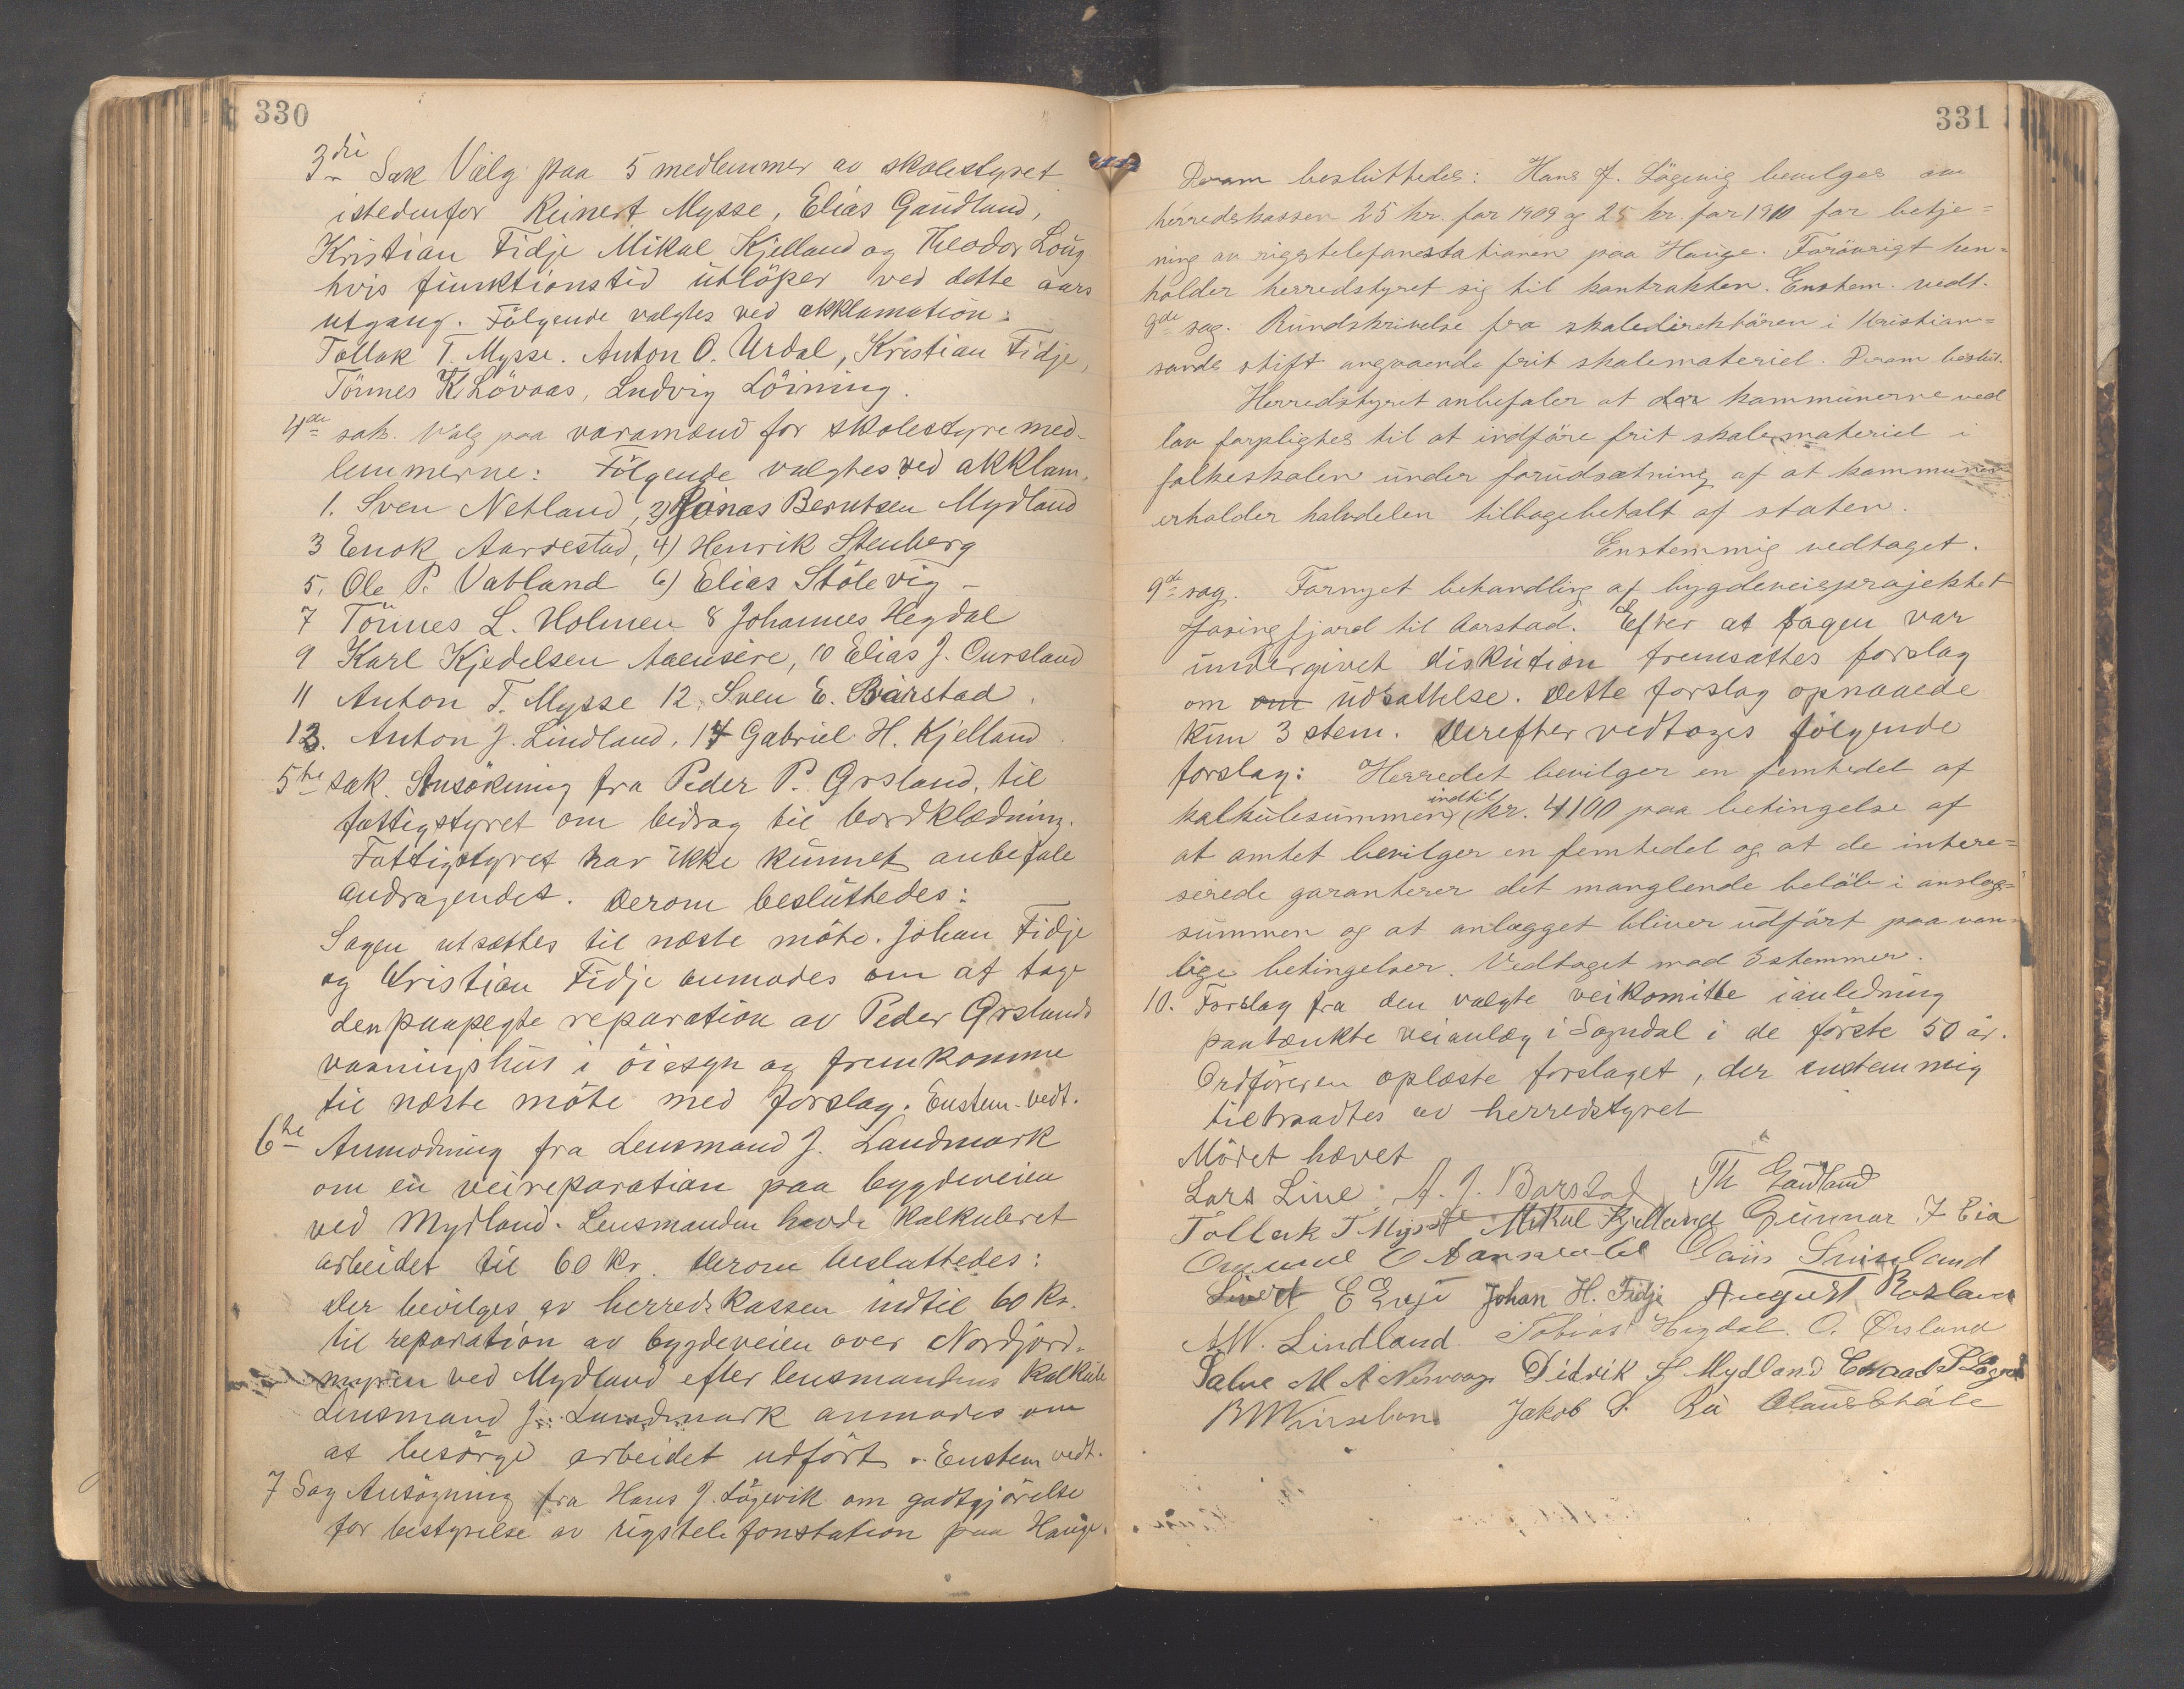 330
3die Sak Valg paa 5 medlemmer av skolestyret
istedenfor Reinert Mysse, Elias Gaudland,
Kristian Fidje Mikal Kjelland og Theodor Loug
hvis funktionstid utlöper ved dette aars
utgang. Fölgende valgtes ved akklamation:
Tollak T. Mysse. Anton O. Urdal, Kristian Fidje,
Tönnes K Lövaas, Ludvig Löining.
4de sak. Valg paa varamænd for skolestyremed-
lemmerne: Fölgende valgtes ved akklam.
1. Sven Netland, 2) Jonas Berntsen Mydland
3 Enok Aarrestad, 4) Henrik Stenberg
5. Ole P. Vatland 6) Elias Stölevig -
7 Tönnes L. Holmen 8 Johannes Hegdal
9 Karl Kjedelsen Aaensire, 10 Elias J. Oursland
11 Anton T. Mysse 12. Sven E. Barstad.
13. Anton J. Lindland. 14 Gabriel H. Kjelland.
5te sak. Ansökning fra Peder P. Örsland, til
fattigstyret om bidrag til bordklædning.
Fattigstyret har ikke kunnet anbefale
andragendet. Derom besluttedes:
Sagen utsættes til næste möte. Johan Fidje
og Kristian Fidje anmodes om at tage
den paapegte reparation av Peder Örslands
vaaningshus i öiesyn og fremkomme
til næste möte med forslag. Enstem. vedt.
6te Anmodning fra Lensmand J. Landmark
om en veireparation paa bygdeveien
ved Mydland. Lensmanden havde kalkuleret
arbeidet til 60 kr. Derom besluttedes:
Der bevilges av herredskassen indtil 60 kr.
til reparation av bygdeveien over Nordfjord-
myren ved Mydland efter lensmandens kalkule
Lensmand J. Landmark anmodes om
at besörge arbeidet udfört. Enstem vedt.
7 Sag Ansögning fra Hans J. Lögevik om godtgjörelse
for bestyrelse av rigstelefonstation paa Hauge.
331
Derom besluttedes: Hans J. Lögevig bevilges av
herredskassen 25 kr. for 1909 og 25 kr. for 1910 for betje=
ning av rigstelefonstationen paa Hauge. Forövrigt hen=
holder herredstyret sig til kontrakten. Enstem. vedt.
9de sag. Rundskrivelse fra skoledirektören i Kristian=
sands stift angaaende frit skolemateriel. Derom beslut.
Herredstyret anbefaler at der kommunerne ved
lov forpligtes til at indföre frit skolemateriel i
folkeskolen under forudsætning af at kommunen
erholder halvdelen tilbagebetalt af staten.
Enstemmig vedtaget.
9de sag. Fornyet behandling af bygdeveisprojektet
Jøsingfjord til Barstad. Efter at sagen var
undergivet diskution fremsattes forslag
om om udsættelse. Dette forslag opnaaede
kun 3 stem. Derefter vedtoges fölgende
forslag: Herredet bevilger en femtedel af
kalkulesummen, indtil kr. 4100 paa betingelse af
at amtet bevilger en femtedel og at de intere=
serede garanterer det manglende belöb i anslags=
summen og at anlægget bliver udfört paa van=
lige betingelser. Vedtaget mod 3 stemmer.
10. Forslag fra den valgte veikomitte i anledning
paatænkte veianlæg i Sogndal i de förste 50 år.
Ordföreren oplæste forslaget, der enstemmig
tiltraadtes av herredstyret
Mödet hævet
Lars Line. A. J. Barstad Th Gaudland
Tollak T Mysse Mikal Kjelland Gunnar J Eia
Omund O Aanstad
Sivert E Eige Johan H. Fidje August Rosland
A W. Lindland. Tobias Hegdal. O. Örsland
Salve M A Nesvaag Didrik S Mydland
Jakob P. Claus Ståle